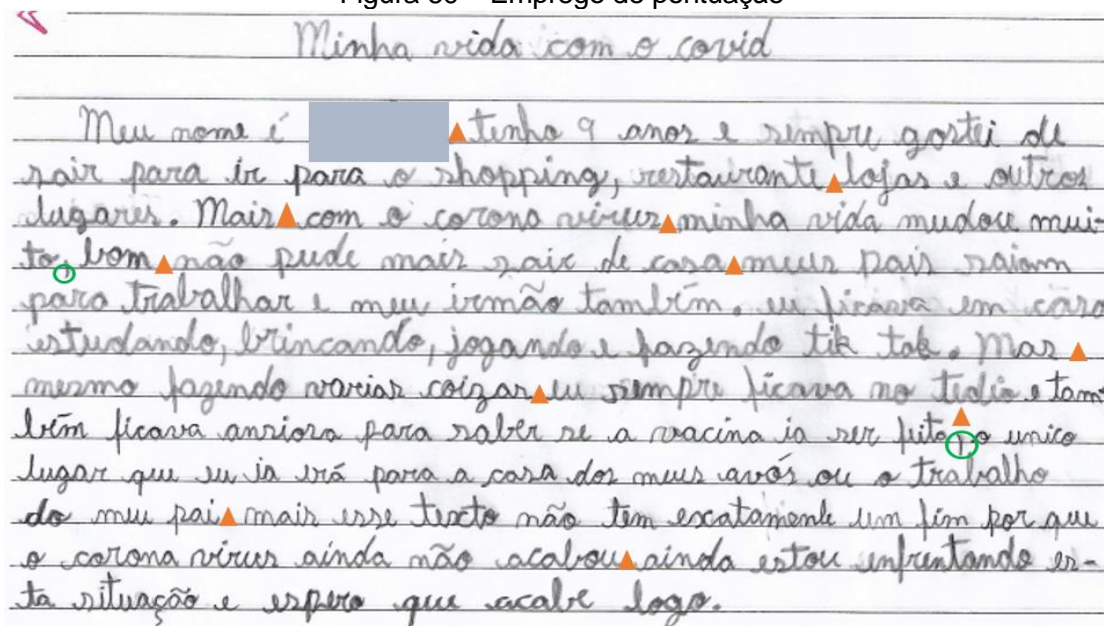 Minha vida com o covid
Meu nome é tenho 9 anos e sempre gostei de
sair para ir para o shopping, restaurante lojas e outros
lugares. Mais com o corona vírus minha vida mudou mui-
to, bom não pude mais sair de casa meus pais saiam
para trabalhar e meu irmão também. eu ficava em casa
estudando, brincando, jogando e fazendo tik tok. Mas
mesmo fazendo varias coizas eu sempre ficava no tedio e tam
bém ficava ansiosa para saber se a vacina ia ser feita, o unico
lugar que eu ia irá para a casa dos meus avós ou o trabalho
do meu pai mais esse texto não tem excatamente um fim por que
o corona vírus ainda não acabou ainda estou enfrentando es-
ta situação e espero que acabe logo.